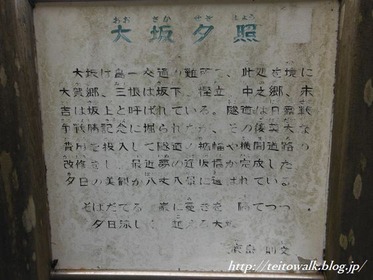 おお ざか せき しょう
大坂夕照
大坂は島一交通の難所で、此処を境に
大賀郷、三根は坂下、樫立、中之郷、末
吉は坂上と呼ばれている。隧道は日露戦
争戦勝記念に掘られたが、その後莫大な
費用を投入して隧道の拡幅や機開道路の
改修をし、最近夢の近坂橋が完成した
夕日の美観が八丈八景に選ばれている。
そばだてる 巌に憂きを 隔てつつ
夕日涼しく 越える大坂
http://teitowalk.blog.jp/